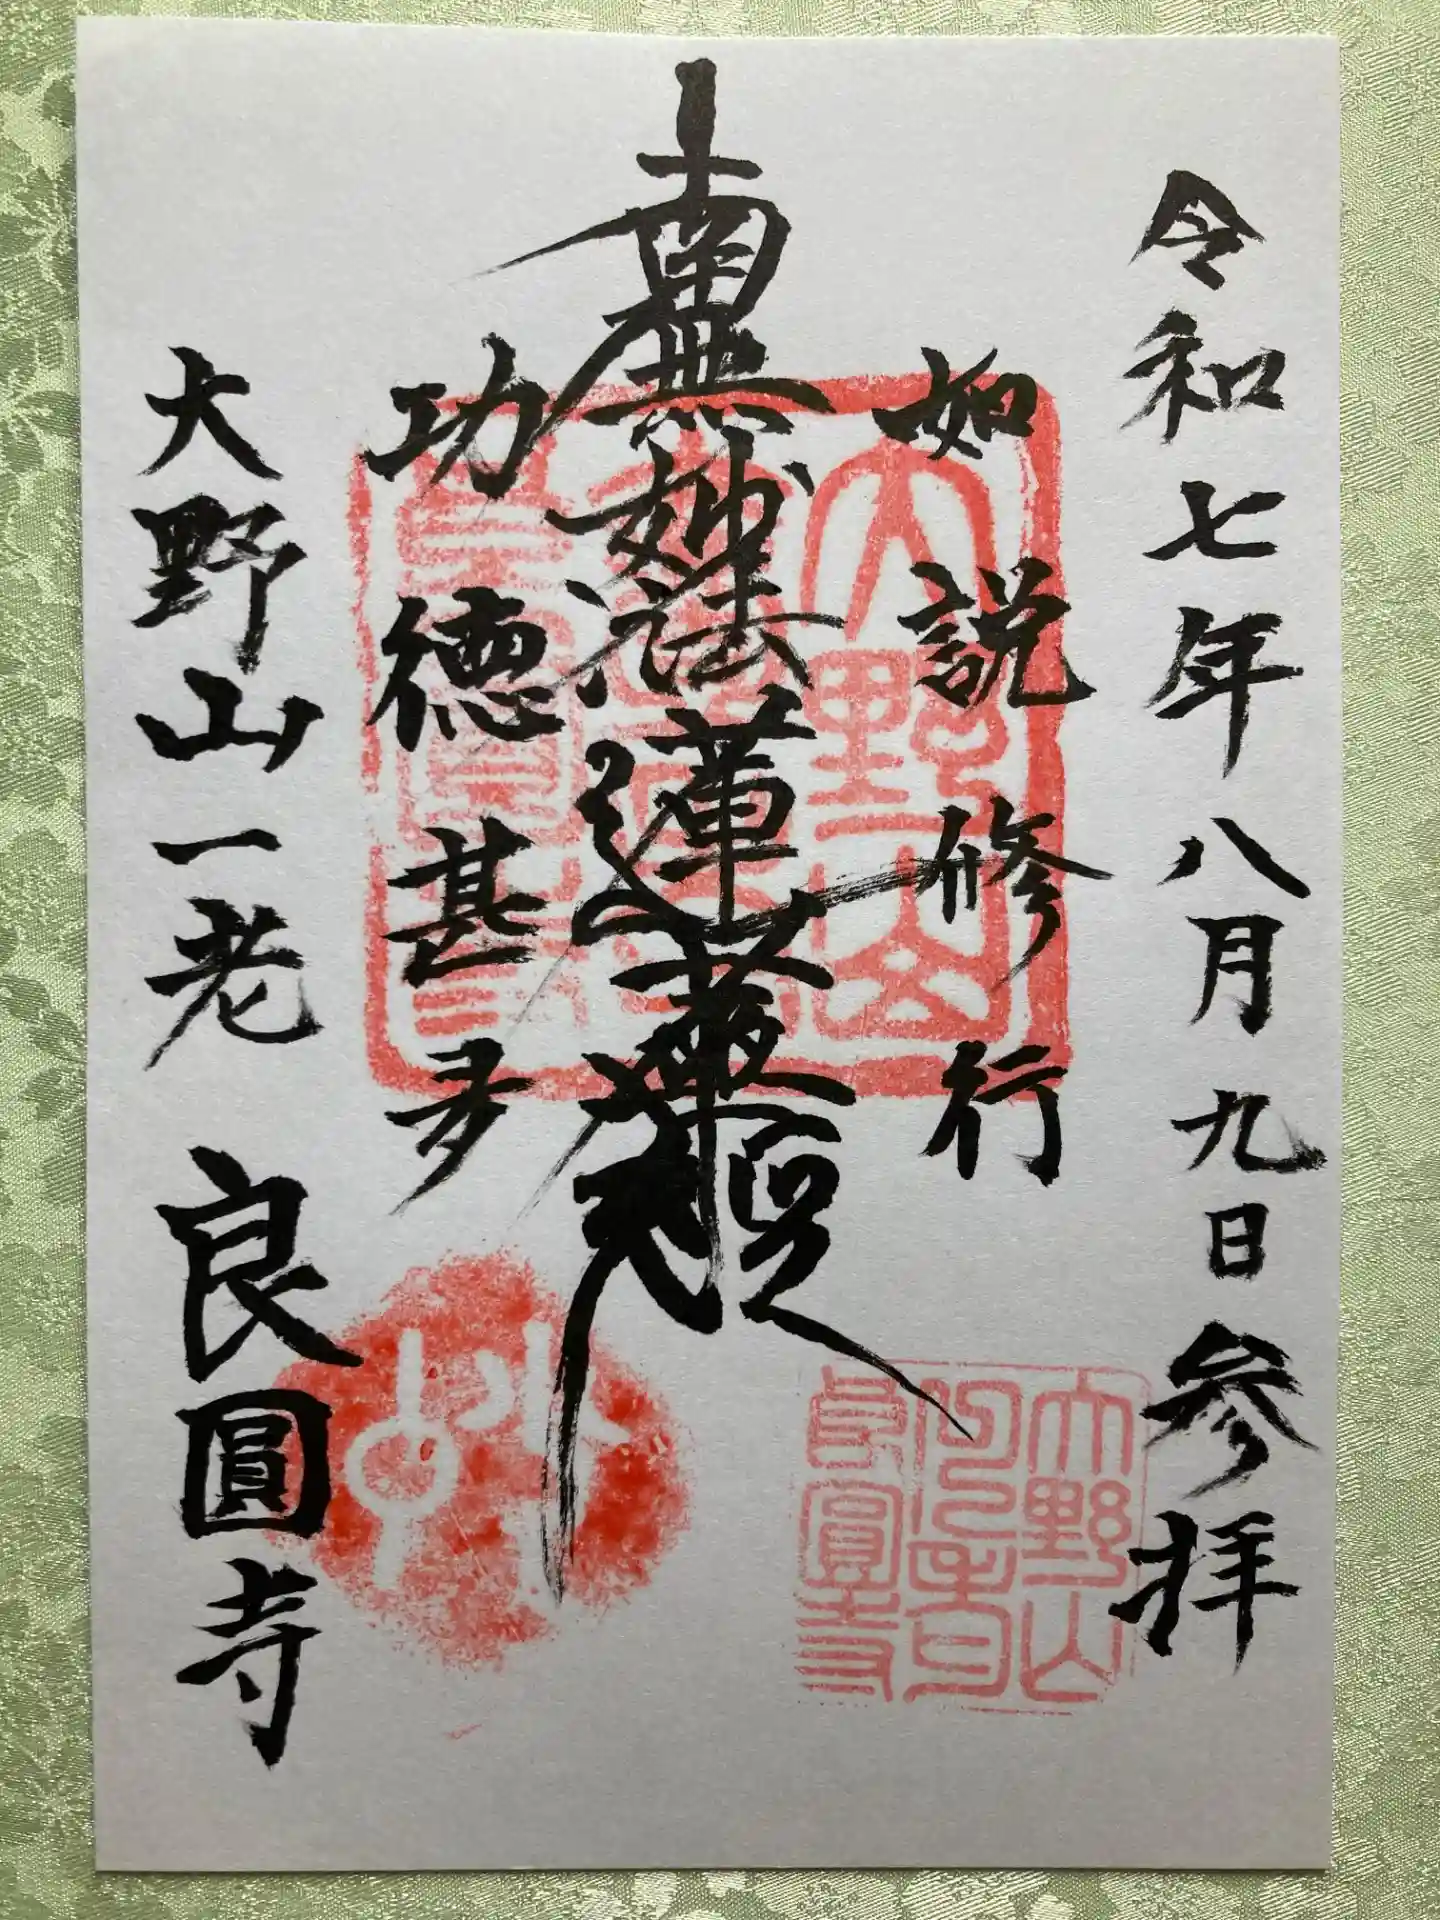 令和七年八月九日参拝
如説修行
南無妙法蓮華経
功徳甚多
大野山一老 良圓寺
大野山
良圓寺